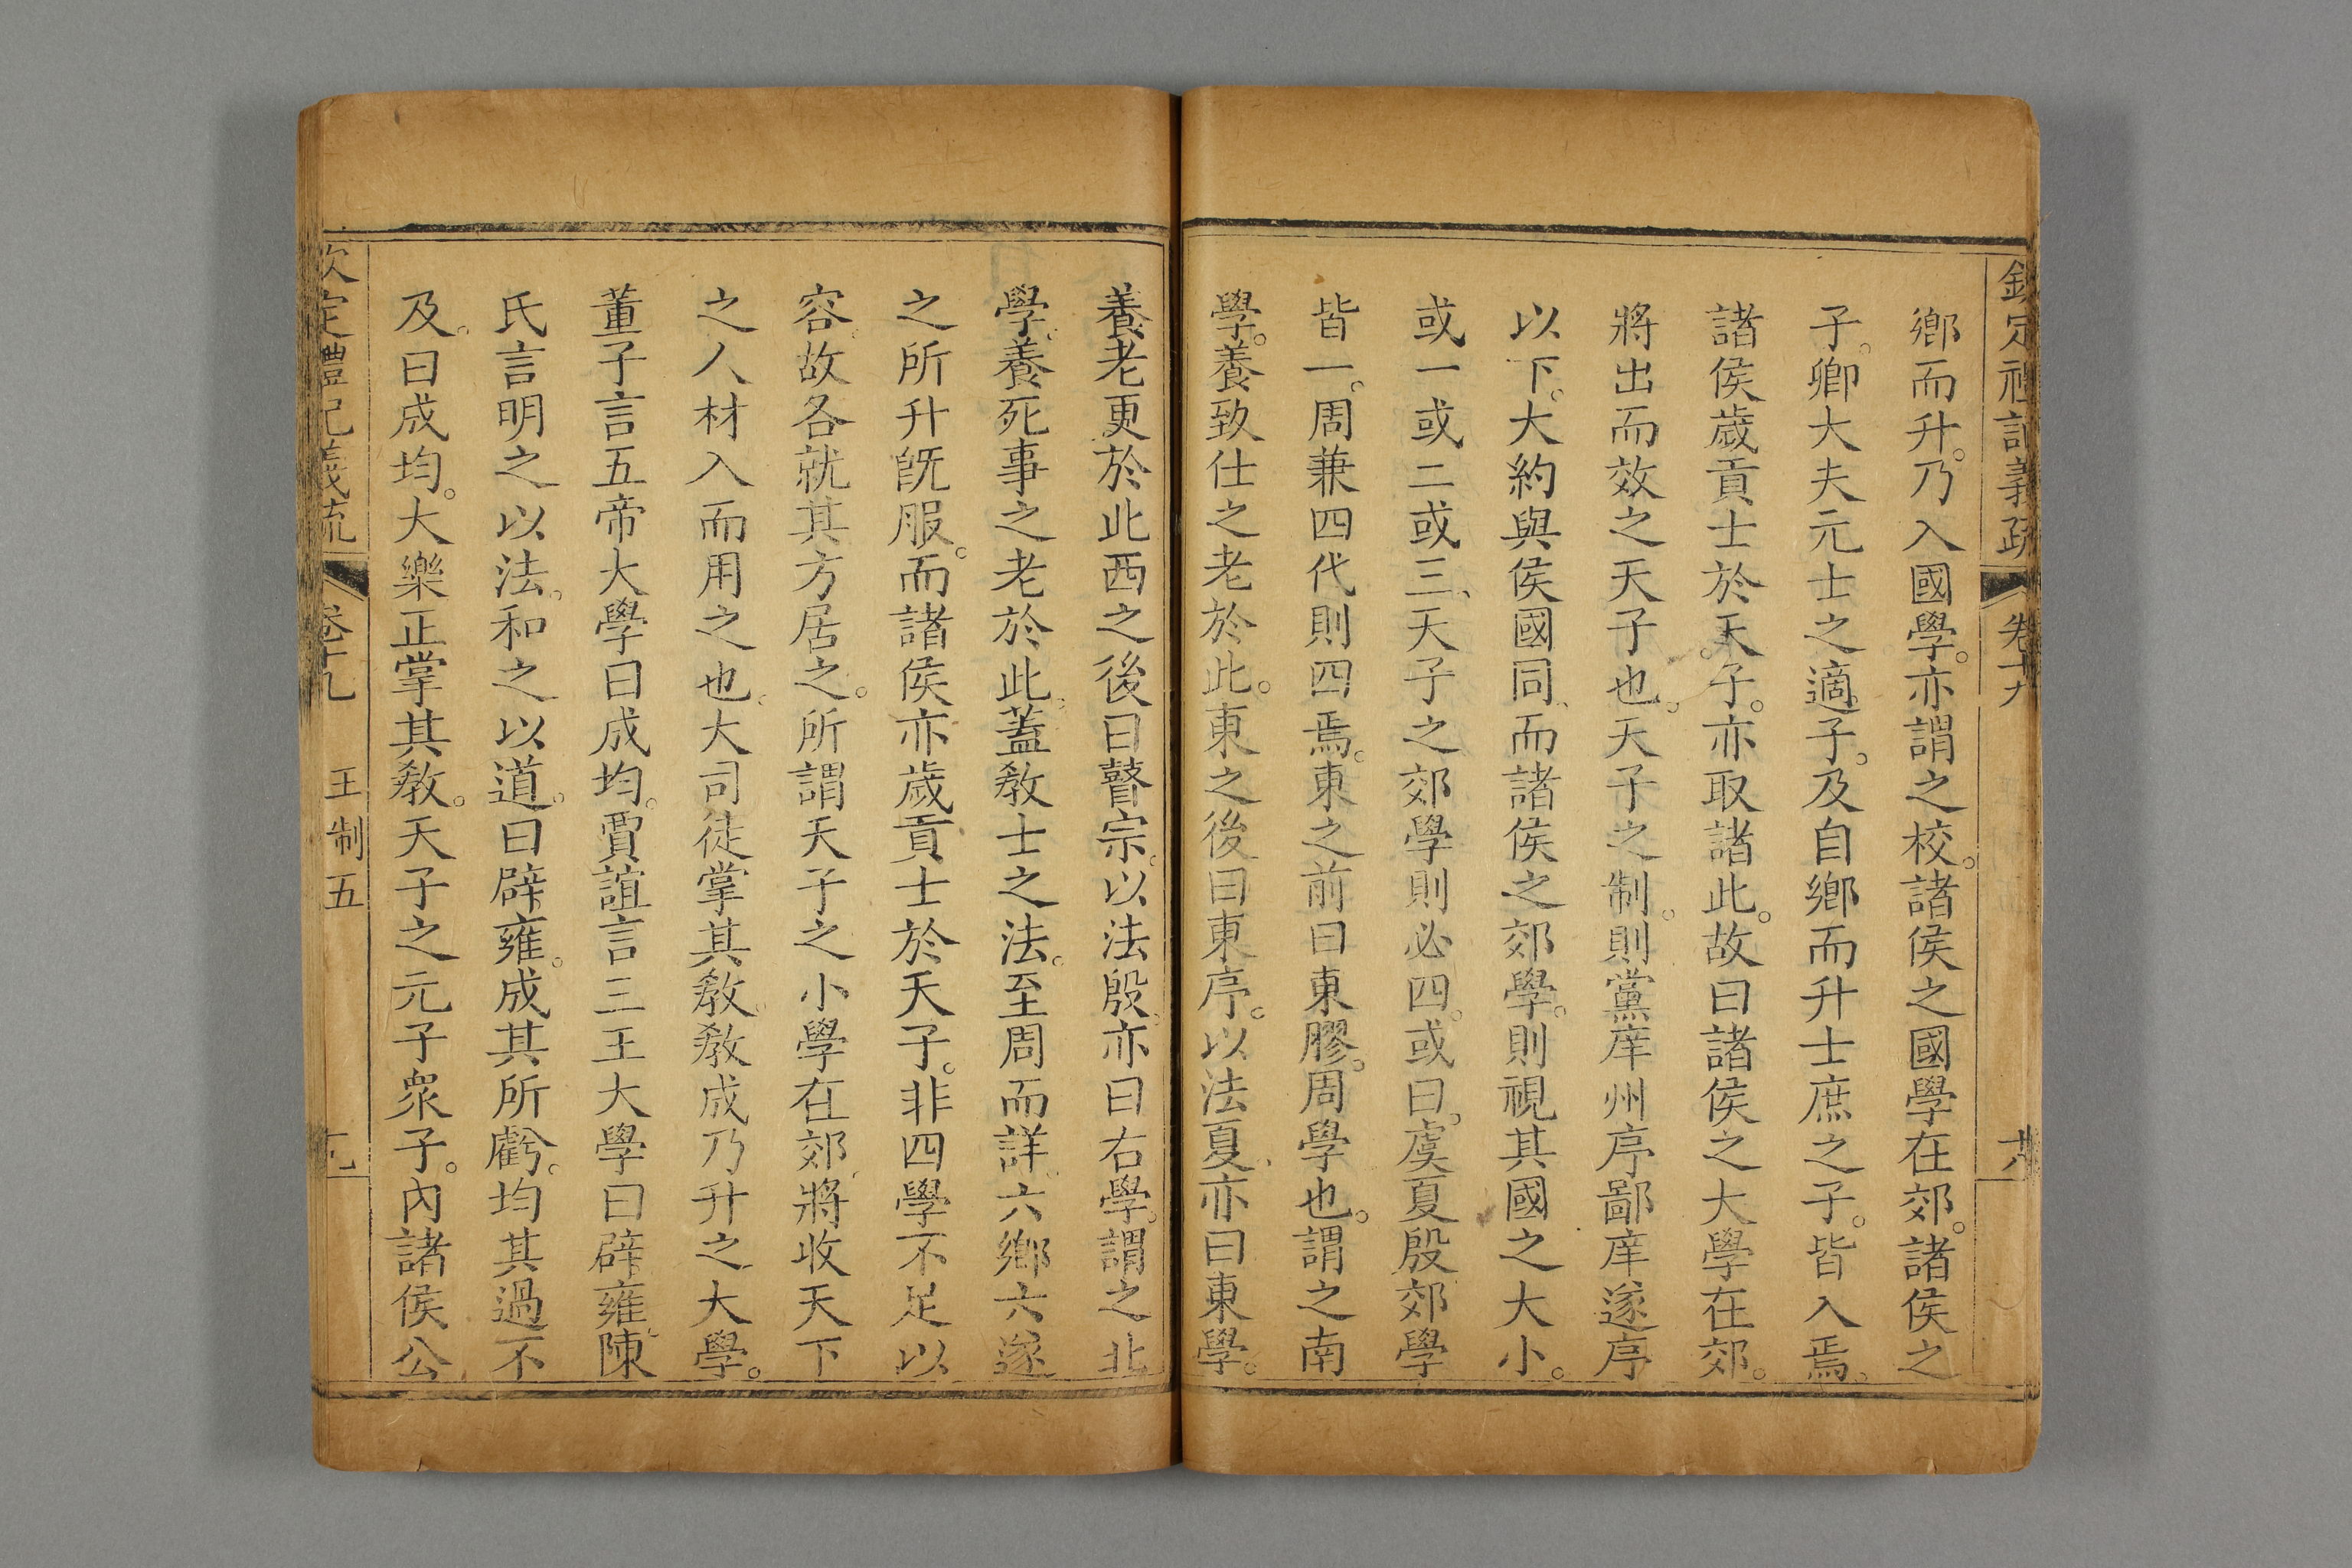 欽定禮記義疏 卷十九 十八
鄉而升。乃入國學。亦謂之校。諸侯之國學在郊。諸侯之
子。卿大夫元士之適子。及自鄉而升士庶之子。皆入焉。
諸侯歲貢士於天子。亦取諸此。故曰諸侯之大學在郊。
將出而效之天子也。天子之制。則黨庠州序鄙庠遂序
以下。大約與侯國同、而諸侯之郊學。則視其國之大小。
或一或二或三、天子之郊學則必四。或曰。虞夏殷郊學
皆一。周兼四代則四焉。東之前曰東膠。周學也。謂之南
學。養致仕之老於此。東之後曰東序。以法夏、亦曰東學。
養老更於此西之後曰瞽宗。以法殷。亦曰右學。謂之北
學。養死事之老於此。蓋教士之法。至周而詳。六鄉六遂
之所升既服。而諸侯亦歲貢士於天子。非四學不足以
容。故各就其方居之。所謂天子之小學在郊、將收天下
之人材入而用之也。大司徒掌其教。教成乃升之大學。
董子言五帝大學曰成均。賈誼言三王大學曰辟雍、陳
氏言明之以法。和之以道。曰辟雍。成其所虧。均其過不
及。曰成均。大樂正掌其教。天子之元子衆子。內諸侯公
欽定禮記義疏 卷十九 王制五 十九